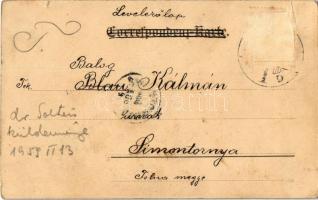 Levelezőlap
Correspondenz-Karte.
Balog
Tek. Blau Kálmán
úrnak
Simontornya
Tolna megye
dr. Soltész
küldeménye
1959 II 13